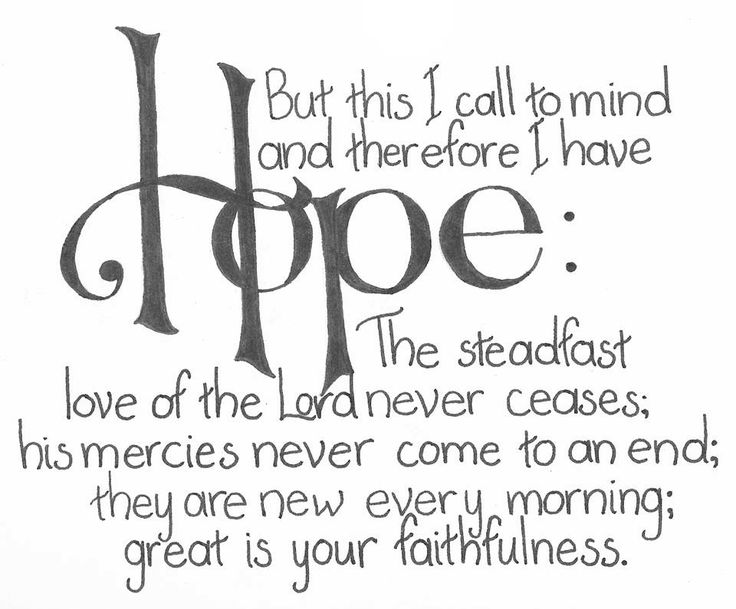 But this I call to mind
and therefore I have
Hope:
The steadfast
love of the Lord never ceases;
his mercies never come to an end;
they are new every morning;
great is your faithfulness.